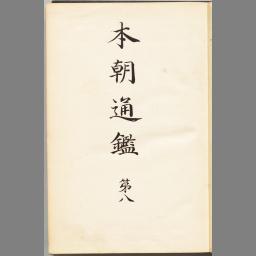 本朝通鑑
第八